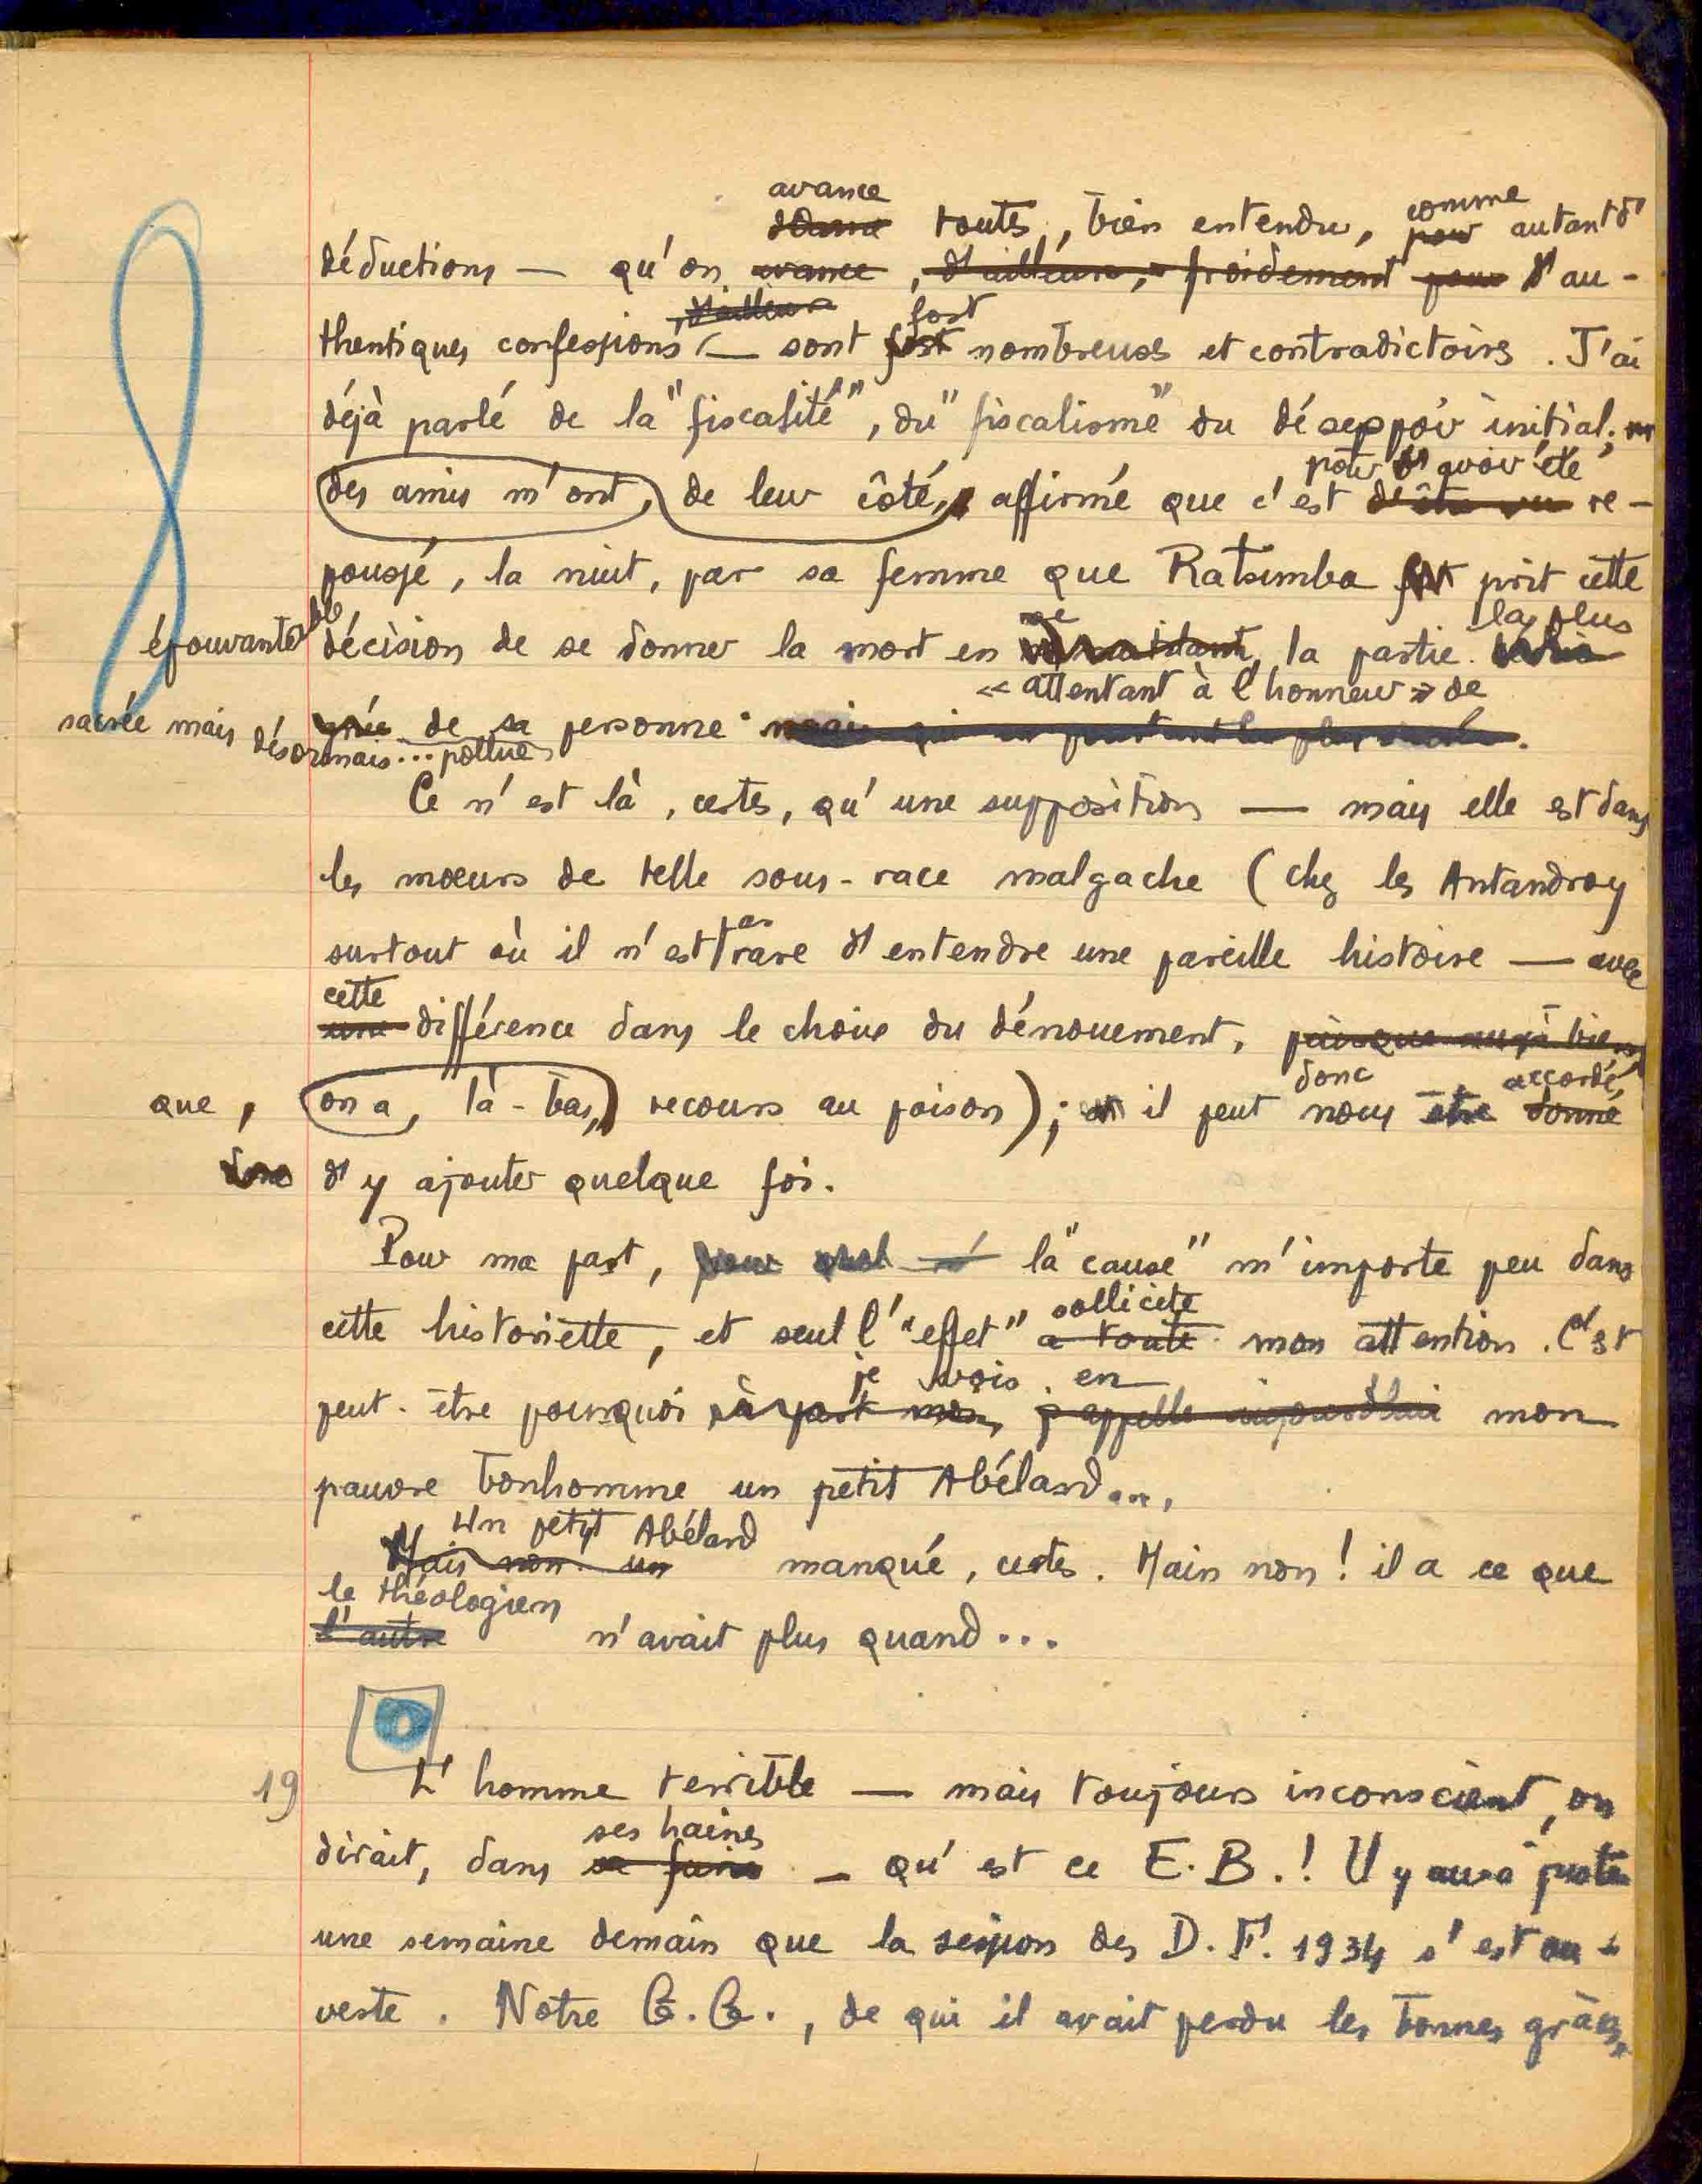 avance
toutes, bien entendu, comme autant d'
déductions — qu'on avance, d'ailleurs, froidement pour d'au-
d'ailleurs
fort
thentiques confessions — sont fort nombreuses et contradictoires. J'ai
déjà parlé de la "fiscalité", du "fiscalisme" du désespoir initial;
pour avoir été
des amis m'ont, de leur côté, affirmé que c'est re-
poussé, la nuit, par sa femme que Ratsimba prit cette
épouvantable
décision de se donner la mort en la partie la plus
« attentant à l'honneur » de
sacrée mais désormais... polluée
de sa personne.
Ce n'est là, certes, qu'une supposition — mais elle est dans
les mœurs de telle sous-race malgache (chez les Antandroy
surtout où il n'est pas rare d'entendre une pareille histoire — avec
cette
une différence dans le choix du dénouement, puisque aussi bien
donc accordé,
que, on a, là-bas, recours au poison); il peut nous être donné
d'y ajouter quelque foi.
Pour ma part, la "cause" m'importe peu dans
sollicite
cette historiette, et seul l'"effet" a toute mon attention. C'est
je vois en
peut-être pourquoi à part moi, j'appelle aujourd'hui mon
pauvre bonhomme un petit Abélard...
Un petit Abélard
Mais non un manqué, certes. Mais non! il a ce que
le théologien
l'autre n'avait plus quand...
19 L'homme terrible — mais toujours inconscient, on
ses haines
dirait, dans — qu'est ce E.B.! Il y aura juste
une semaine demain que la session des D.F. 1934 s'est ou-
verte. Notre G.G., de qui il avait perdu les bonnes grâces,